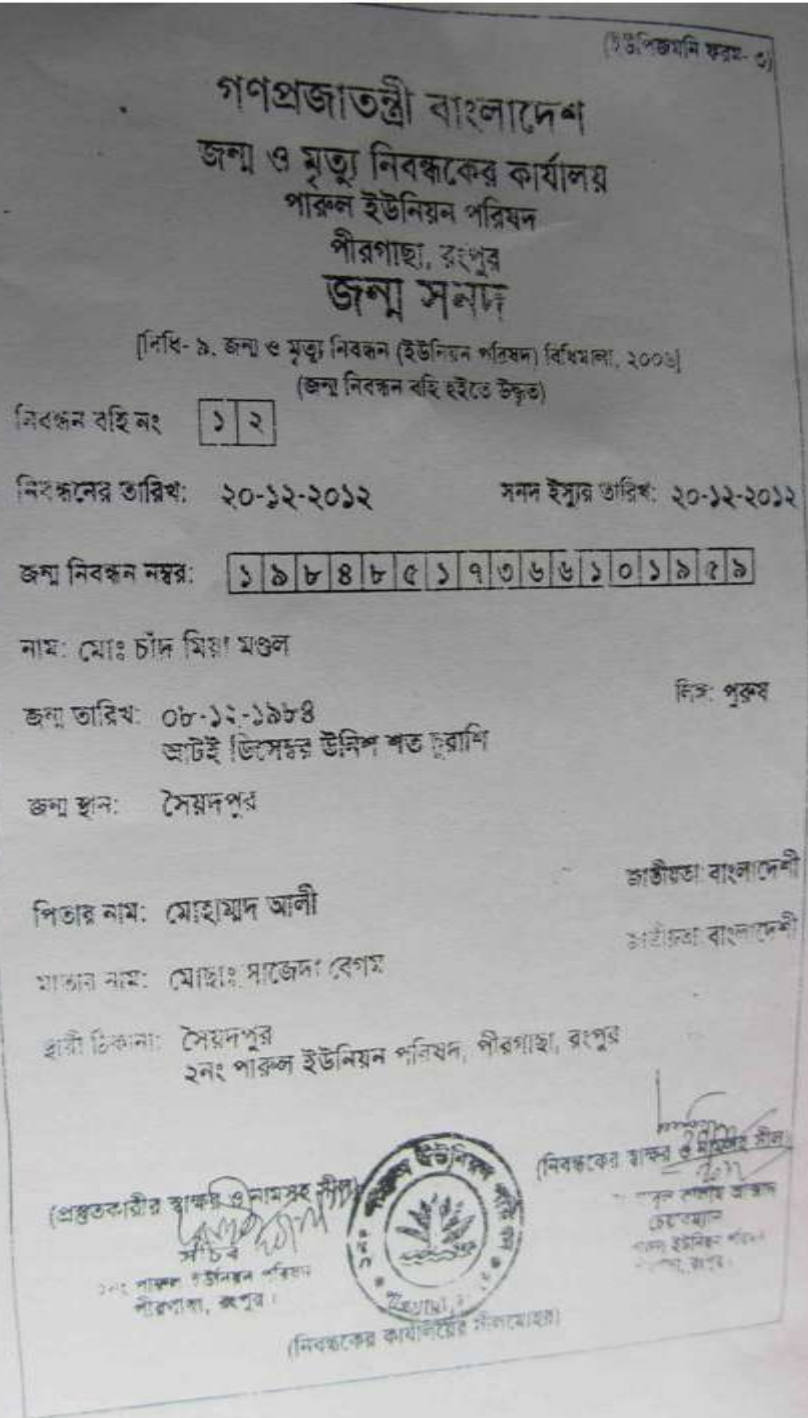 (ইউপিজমনি ফরম- ৩)
গণপ্রজাতন্ত্রী বাংলাদেশ
জন্ম ও মৃত্যু নিবন্ধকের কার্যালয়
পারুল ইউনিয়ন পরিষদ
পীরগাছা, রংপুর
জন্ম সনদ
[বিধি- ৯, জন্ম ও মৃত্যু নিবন্ধন (ইউনিয়ন পরিষদ) বিধিমালা, ২০০৬]
(জন্ম নিবন্ধন বহি হইতে উদ্ধৃত)
নিবন্ধন বহি নং ১২
নিবন্ধনের তারিখ: ২০-১২-২০১২ সনদ ইস্যুর তারিখ: ২০-১২-২০১২
জন্ম নিবন্ধন নম্বর: ১৯৮৪৮৫১৭৩৬৬১০১৯৫৯
নাম: মোঃ চাঁদ মিয়া মণ্ডল
লিঙ্গ: পুরুষ
জন্ম তারিখ: ০৮-১২-১৯৮৪
আটই ডিসেম্বর উনিশ শত চুরাশি
জন্ম স্থান: সৈয়দপুর
জাতীয়তা: বাংলাদেশী
পিতার নাম: মোহাম্মদ আলী
জাতীয়তা: বাংলাদেশী
মাতার নাম: মোছাঃ সাজেদা বেগম
স্থায়ী ঠিকানা: সৈয়দপুর
২নং পারুল ইউনিয়ন পরিষদ, পীরগাছা, রংপুর
(নিবন্ধকের স্বাক্ষর ও নামসহ সীল)
(প্রস্তুতকারীর স্বাক্ষর ও নামসহ সীল)
সচিব
২নং পারুল ইউনিয়ন পরিষদ
পীরগাছা, রংপুর।
চেয়ারম্যান
ইউনিয়ন পরিষদ
রংপুর।
পারুল ইউনিয়ন
(নিবন্ধকের কার্যালয়ের সীলমোহর)